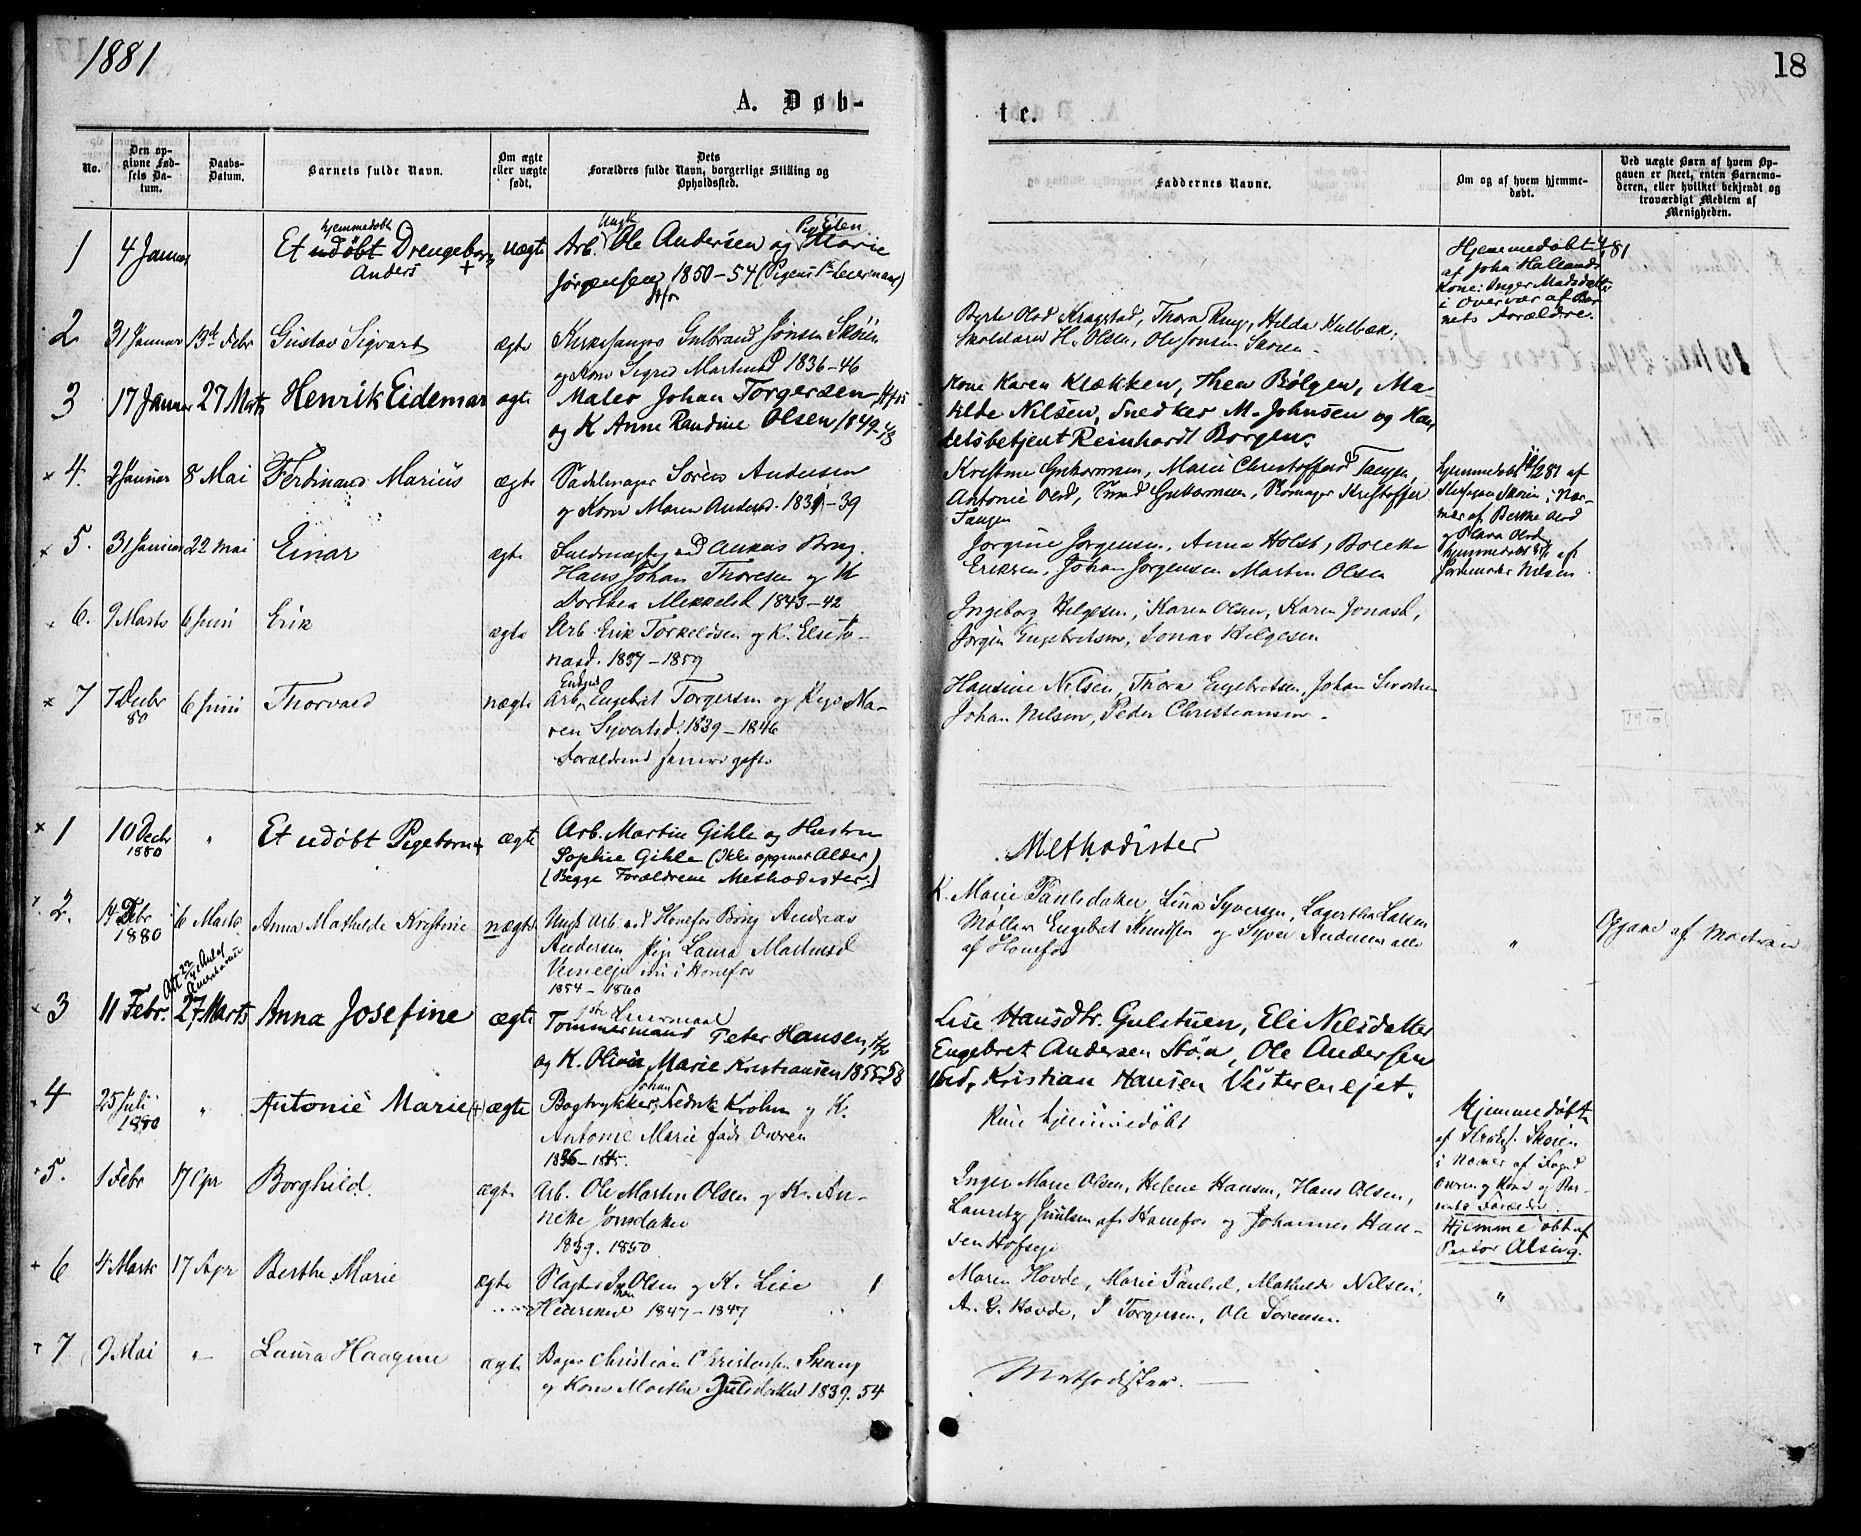 1881
18
A. Døb-
te.
No.
Den op-
givne Fød-
sels Da-
tum.
Daabs-
Datum.
Barnets fulde Navn.
Om ægte
eller uægte
født.
Dets
Forældres fulde Navn, borgerlige Stilling og
Opholdssted.
Faddernes Navne.
Om og af hvem hjemme-
døbt.
Ved uægte Børn af hvem Op-
gaven er skeet, enten Barnemo-
deren, eller hvilket bekjendt og
troværdigt Medlem af
Menigheden.
1 4 Januar
hjemmedøbt
Et udøbt Drengebarn +
Anders
uægte
Ungk Pig Eilen
Arb. Ole Andersen og Marie
Jørgensen 1850-54 (Pigens 1ste Leiermaal)
Hjemmedøbt 4/1 81
af John Hallands
Kone: Inger Madsdatter
i Overvær af Bar-
nets Forældre.
2 31 Januar 13de Febr Gustav Sigvart ægte
Kirkesanger Gulbrand Jonsen Skøien
og Kone Sigrid Martinsd 1836-46
Byrte Olsd Kragstad, Thora Ring, Hilda Hulbæk,
Skolelærer H. Olsen, Ole Jonsen Skøien
3 17 Januar 27 Marts Henrik Eidemar ægte
Maler Johan Torgersen, Hfos
og K Anne Randine Olsen 1849-48
Kone Karen Klækken, Thea Bølgen, Ma-
tilde Nilsen, Snedker M. Johnsen og Han-
delsbetjent Reinhardt Borgen.
4. 2 Januar 8 Mai Ferdinand Marius ægte
Sadelmager Søren Andersen
og Kone Maren Andersd. 1839-39
Kristine Gutormsen, Marie Christoffersd Tangen,
Antonie Olsd, Gutormsen, Skomager Kristoffer
Tangen
hjemmedøbt 81 af
Skøien i Nær-
vær af Berthe Olsd
og Olava Olsd
5. 31 Januar 22 Mai Einar ægte
Hans Johan Thoresen og K
Dorthea Mikkelsd 1843-42
Jørgine Jørgensen, Anna Holst, Bolette
Eriksen, Johan Jørgensen Martin Olsen
hjemmedøbt af
Jordmoder Nilsen
6. 9 Marts 6 Juni Erik ægte
Arb. Erik Torkeldsen og K. Else Jo-
nasd. 1837-1859
Ingeborg Helgesen, Karen Olsen, Karen Jonasd,
Jørgen Engebretsen, Jonas Helgesen
7 7 Decbr
80 6 Juni Thorvald uægte
Arb. Engebret Torgersen og Pige Ma-
ren Syvertsd. 1839-1846
Forældrene senere gifte
Hansine Nilsen, Thora Engebretsen, Johan
Johan Nilsen, Peder Christiansen.
1 10 Decbr
1880 " Et udøbt Pigebarn + ægte
Arb. Martin Gihle og Hustru
Sophie Gihle (Ikke opgivet Alder)
(Begge Forældrene Methodister)
Methodister
2. 14 Febr
1880 6 Marts Anna Mathilde Kristine uægte
Ungk Arb. ved Hønefos Brug Andreas
Andersen Pige Laura Madensd
i Hønefos
1854-1860
K. Marie Paulsdatter, Lina Syversen, Lagertha Larsen
Møller Engebret Knudsen og Syver Andersen alle
af Hønefos
"
Opgave af Moderen
3 11 Febr. 27 Marts Anna Josefine ægte
1ste Leiermaal
Tømmermand Peter Hansen,
og K. Olivia Marie Kristiansen 1855-58
Lise Hansdtr. Gulstuen, Eli Nilsdatter
Engebret Andersen Støa, Ole Andersen
ibid, Kristian Hansen Vesterenejet.
4 25 Juli
1880 " Antonie Marie + ægte
Johan
Bogtrykker Fredrik Krohn og K.
Antonie Marie født Owren
1836-1845.
Kun hjemmedøbt
Hjemmedøbt
af Kirkes. Skøien
i Nærvær af Foged
Owren og Kone og Bar-
nets Forældre.
5. 1 Febr 17 Apr Borghild. ægte
Arb. Ole Martin Olsen og K. An-
nike Jonsdatter
1839. 1850
Inger Marie Olsen, Helene Hansen, Hans Olsen,
Lauritz Juulsen af Hønefos og Johannes Han-
sen Hofseje
Hjemmedøbt af
Pastor Alsing.
6 4 Marts 17 Apr Berthe Marie ægte
Slagter Olsen og K. Lise
Henriksd 1847-1847
Maren Hovde, Marie Paulsd, Mathilde Nilsen,
A. G. Hovde, J Torgersen, Ole Sørensen
"
7 9 Mai " Laura Haagine ægte
Bager Christian Christensen Skaug
og Kone Marthe Juulsdatter 1839. 54
Methodister.